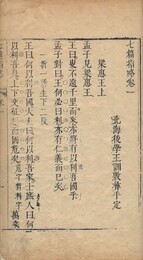 七篇指略卷一
北海後學王訓敷彝手定
梁惠王上
孟子見梁惠王
王曰叟不遠千里而來亦將有以利吾國乎
孟子對曰王何必曰利亦有仁義而已矣
王曰何以利吾國大夫曰何以利吾家士庶人曰何
以利吾身上下交征利而國危矣